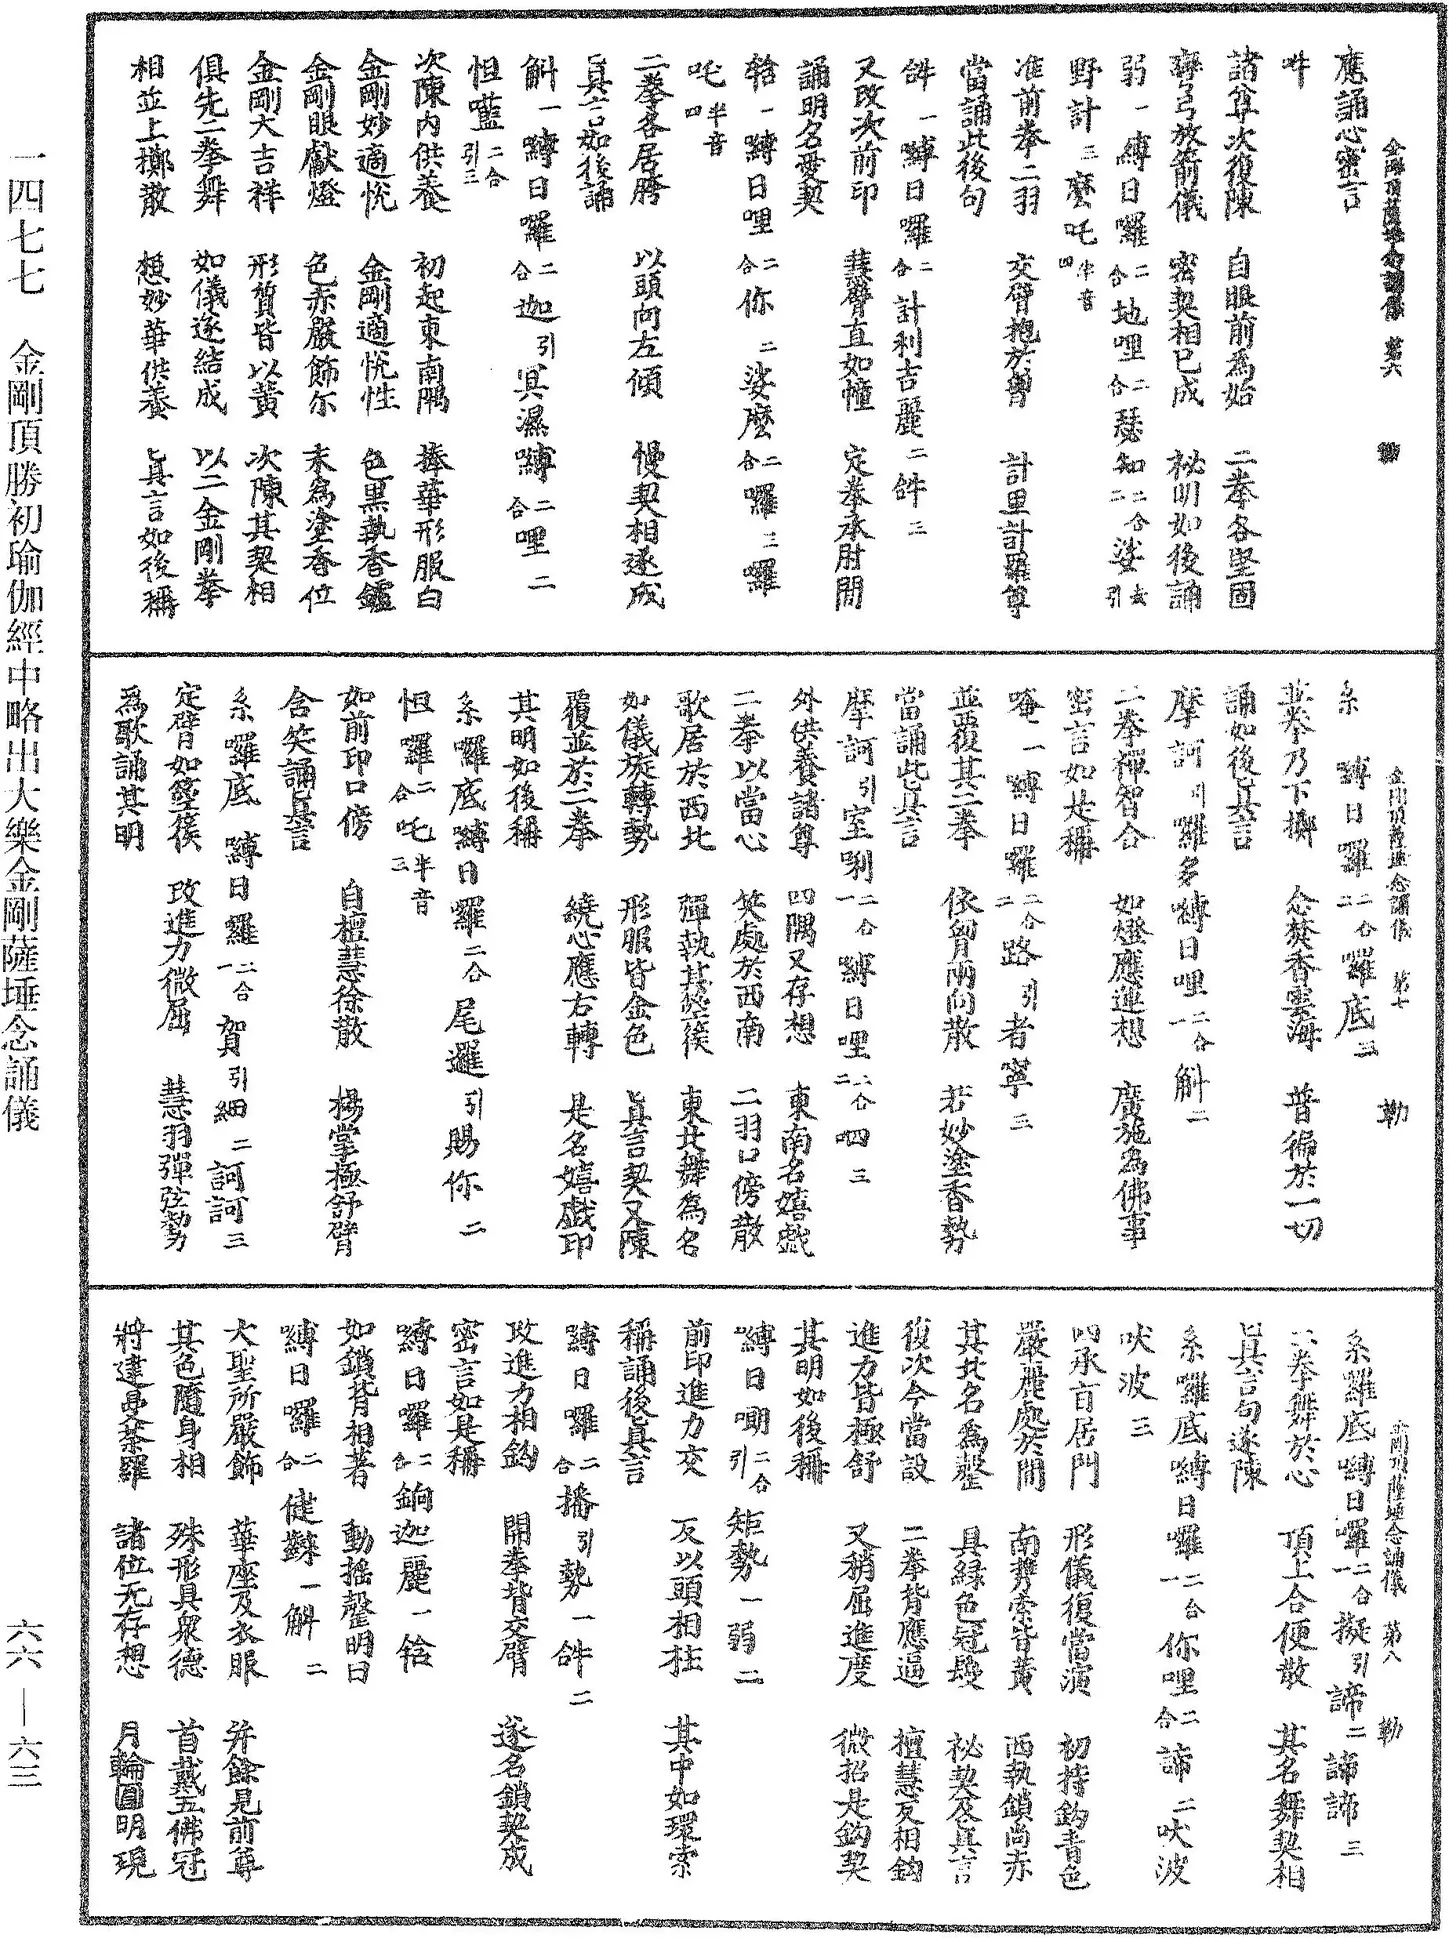 應誦心密言
吽
諸尊次復陳　自眼前為始　二拳各堅固
彎弓放箭儀　密契相已成　祕明如後誦
弱一縛日囉二合地哩二合瑟知二合二娑去引
野計三麼吒半音四
准前拳二羽　交臂抱於胷　計里計羅尊
當誦此後句
斛一縛日囉二合計利吉麗二斛三
又改次前印　慧臂直如幢　定拳承肘間
誦明名愛契
輅一縛日哩二合你二娑麽二合囉三囉
吒半音四
二拳各居胯　以頭向左傾　慢契相遂成
真言如後誦
斛一縛日囉二合迦引冥濕縛二合哩二
怛囕二合引三
次陳內供養　初起東南隅　捧華形服白
金剛妙適悅　金剛適悅性　色黑執香鑪
金剛眼獻燈　色赤嚴飾尔　末為塗香位
金剛大吉祥　形質皆以黃　次陳其契相
俱先二拳舞　如儀遂結成　以二金剛拳
相並上擲散　想妙華供養　真言如後稱
金剛頂薩埵念誦儀　第六
系　縛日囉二合二羅底三
並拳乃下擲　念焚香雲海　普徧於一切
誦如後真言
摩訶引囉多縛日哩二合一斛二
二拳禪智合　如燈應運想　廣施為佛事
密言如是稱
唵一縛日囉二合二路引者寧三
並覆其二拳　依胷兩向散　若妙塗香勢
當誦此真言
摩訶引室唎二合一縛日哩二合二呬三
外供養諸尊　四隅又存想　東南名嬉戲
二拳以當心　笑處於西南　二羽口傍散
歌居於西北　彈執其箜篌　東北舞為名
如儀旋轉勢　形服皆金色　真言契又陳
覆並於二拳　繞心應右轉　是名嬉戲印
其明如後稱
系囉底縛日囉二合尾邏引賜你二
怛囉二合吒半音三
如前印口傍　自檀慧徐散　楊掌極舒臂
含笑誦真言
系囉底　縛日羅二合一賀引細二訶訶三
定臂如箜篌　改進力微屈　慧羽彈弦勢
為歌誦其明
金剛頂薩埵念誦儀　第七　勒
系羅底縛日囉二合一擬引諦二諦諦三
二拳舞於心　頂上合便散　其名舞契相
真言句遂陳
系囉底縛日囉二合一你哩二合諦二吠波
吠波三
四承旨居門　形儀復當演　初持鈎青色
嚴麗處於間　南㩗索皆黃　西執鎖尚赤
其北名為罄　具綠色冠鬘　祕契及真言
復次今當設　二拳背應逼　檀慧反相鈎
進力皆極舒　又稍屈進度　微招是鈎契
其明如後稱
縛日嘲二合引矩勢一弱二
前印進力交　反以頭相柱　其中如環索
稱誦後真言
縛日囉二合播引勢一斛二
改進力相鈎　開拳背交臂　遂名鎖契成
密言如是稱
縛日囉二合餉迦麗一輅
如鎖背相著　動搖罄明曰
縛日囉二合健䭾一斛二
大聖所嚴飾　華座及衣服　并餘見前尊
其色隨身相　殊形具衆德　首戴五佛冠
將建曼荼羅　諸位无存想　月輪圓明現
金剛頂薩埵念誦儀　第八　勒
一四七七　金剛頂勝初瑜伽經中略出大樂金剛薩埵念誦儀　六六—六三